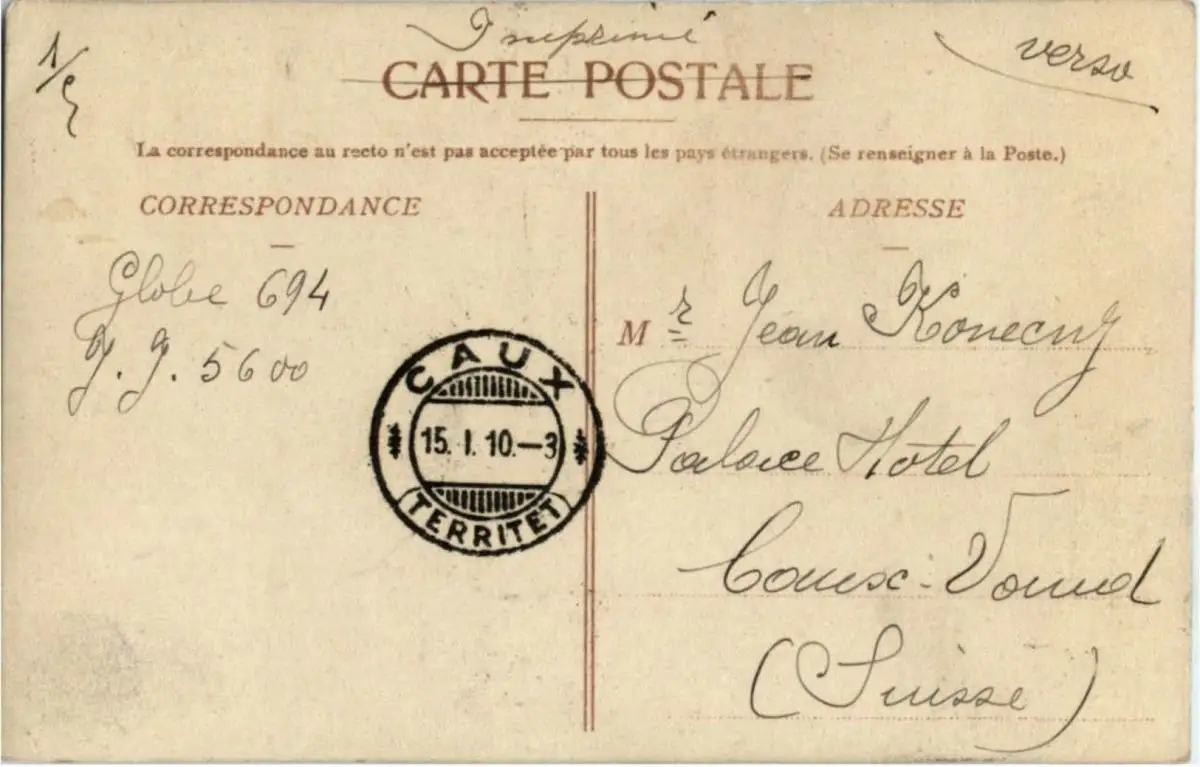 Imprimé
verso
CARTE POSTALE
La correspondance au recto n'est pas acceptée par tous les pays étrangers. (Se renseigner à la Poste.)
CORRESPONDANCE
Globe 694
J. J. 5600
CAUX
15. I. 10.—3
(TERRITET)
ADRESSE
Mr Jean Konecny
Palace Hotel
Caux-Vaud
(Suisse)